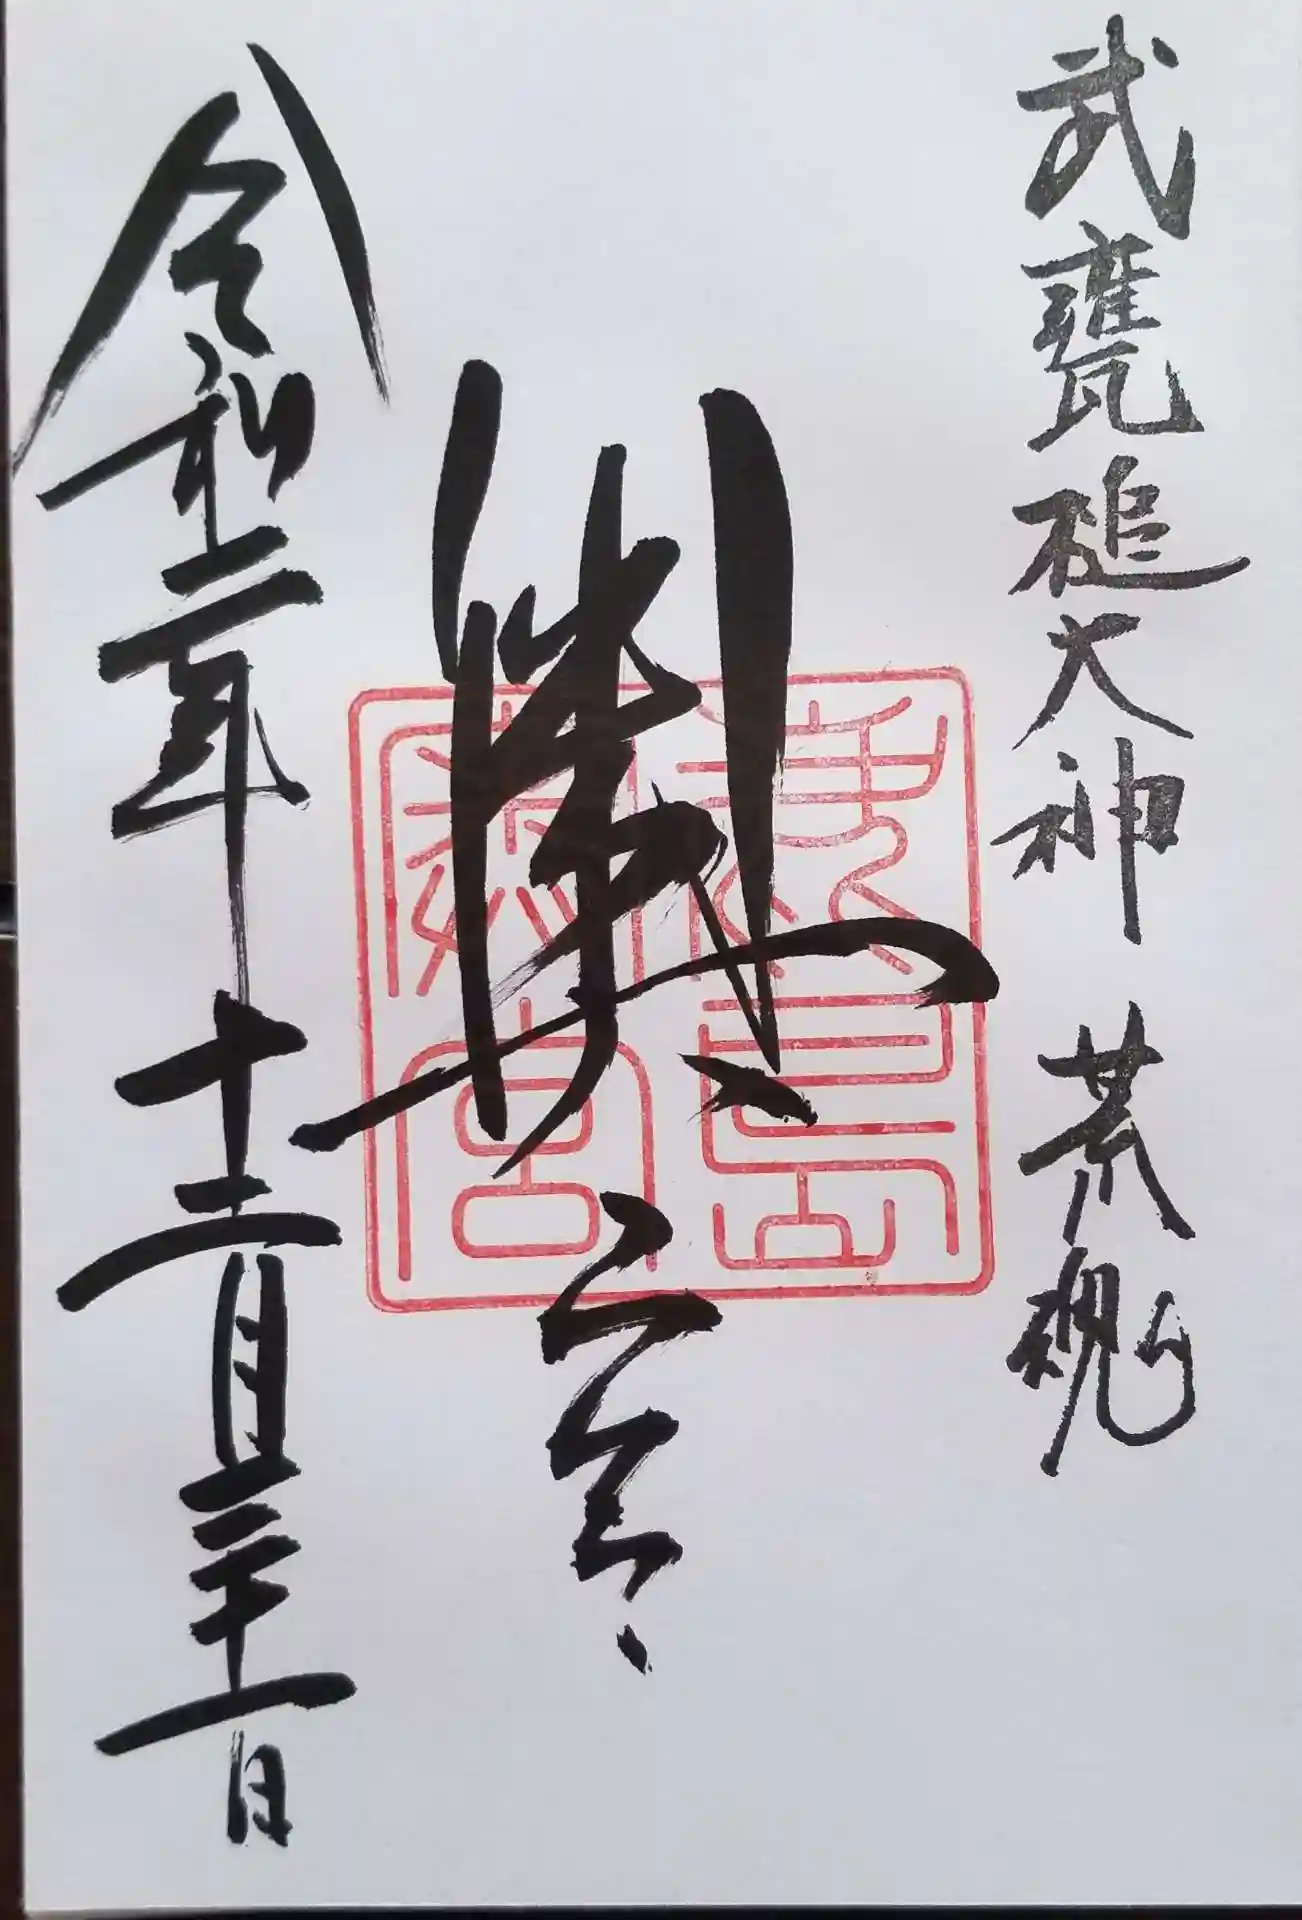 武甕槌大神 荒魂
奥宮
鹿島
奥宮
令和二年十二月三十一日